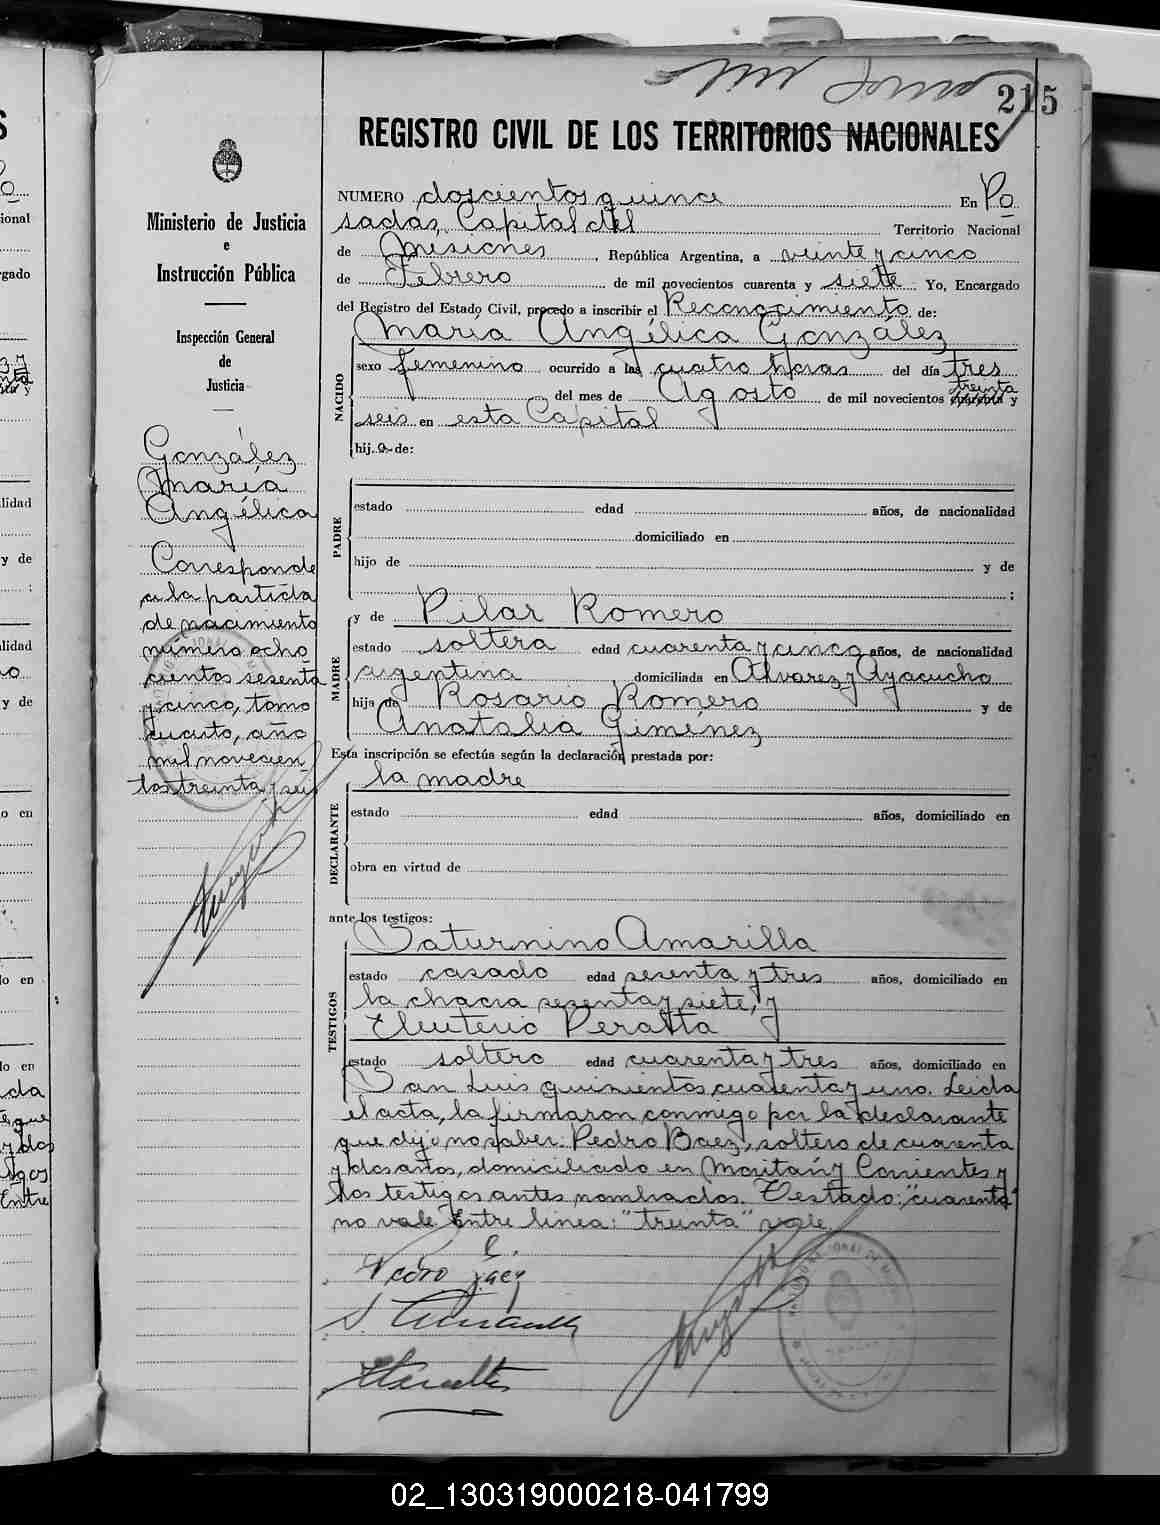 215
REGISTRO CIVIL DE LOS TERRITORIOS NACIONALES
Ministerio de Justicia
e
Instrucción Pública
Inspección General
de
Justicia
González
María
Angélica
Corresponde
a la partida
de nacimiento
número ocho
cientos sesenta
y cinco, tomo
cuarto, año
mil novecien
tos treinta y seis
NUMERO doscientos quince En Po
sadas, Capital del Territorio Nacional
de Misiones, República Argentina, a veinte y cinco
de Febrero de mil novecientos cuarenta y siete Yo, Encargado
del Registro del Estado Civil, procedo a inscribir el Reconocimiento de:
María Angélica González
NACIDO
sexo femenino ocurrido a las cuatro horas del día tres
treinta
del mes de Agosto de mil novecientos cuarenta y
seis en esta Capital
hij a de:
PADRE
estado edad años, de nacionalidad
domiciliado en
hijo de y de
;
y de Pilar Romero
MADRE
estado soltera edad cuarenta y cinco años, de nacionalidad
argentina, domiciliada en Alvarez y Ayacucho
hija de Rosario Romero y de
Anatalia Giménez
Esta inscripción se efectúa según la declaración prestada por:
la madre
DECLARANTE
estado edad años, domiciliado en
obra en virtud de
ante los testigos:
Saturnino Amarilla
TESTIGOS
estado casado edad sesenta y tres años, domiciliado en
la chacra sesenta y siete, y
Eleuterio Peralta
estado soltero edad cuarenta y tres años, domiciliado en
San Luis quinientos cuarenta y uno. Leida
el acta, la firmaron conmigo por la declarante
que dijo no saber: Pedro Baez, soltero de cuarenta
y dos años, domiciliado en Moritán y Corrientes y
los testigos antes nombrados. Testado: "cuarenta"
no vale. Entre linea: "treinta" vale.
Pedro Baez
S. Amarilla
E Peralta
02_130319000218-041799